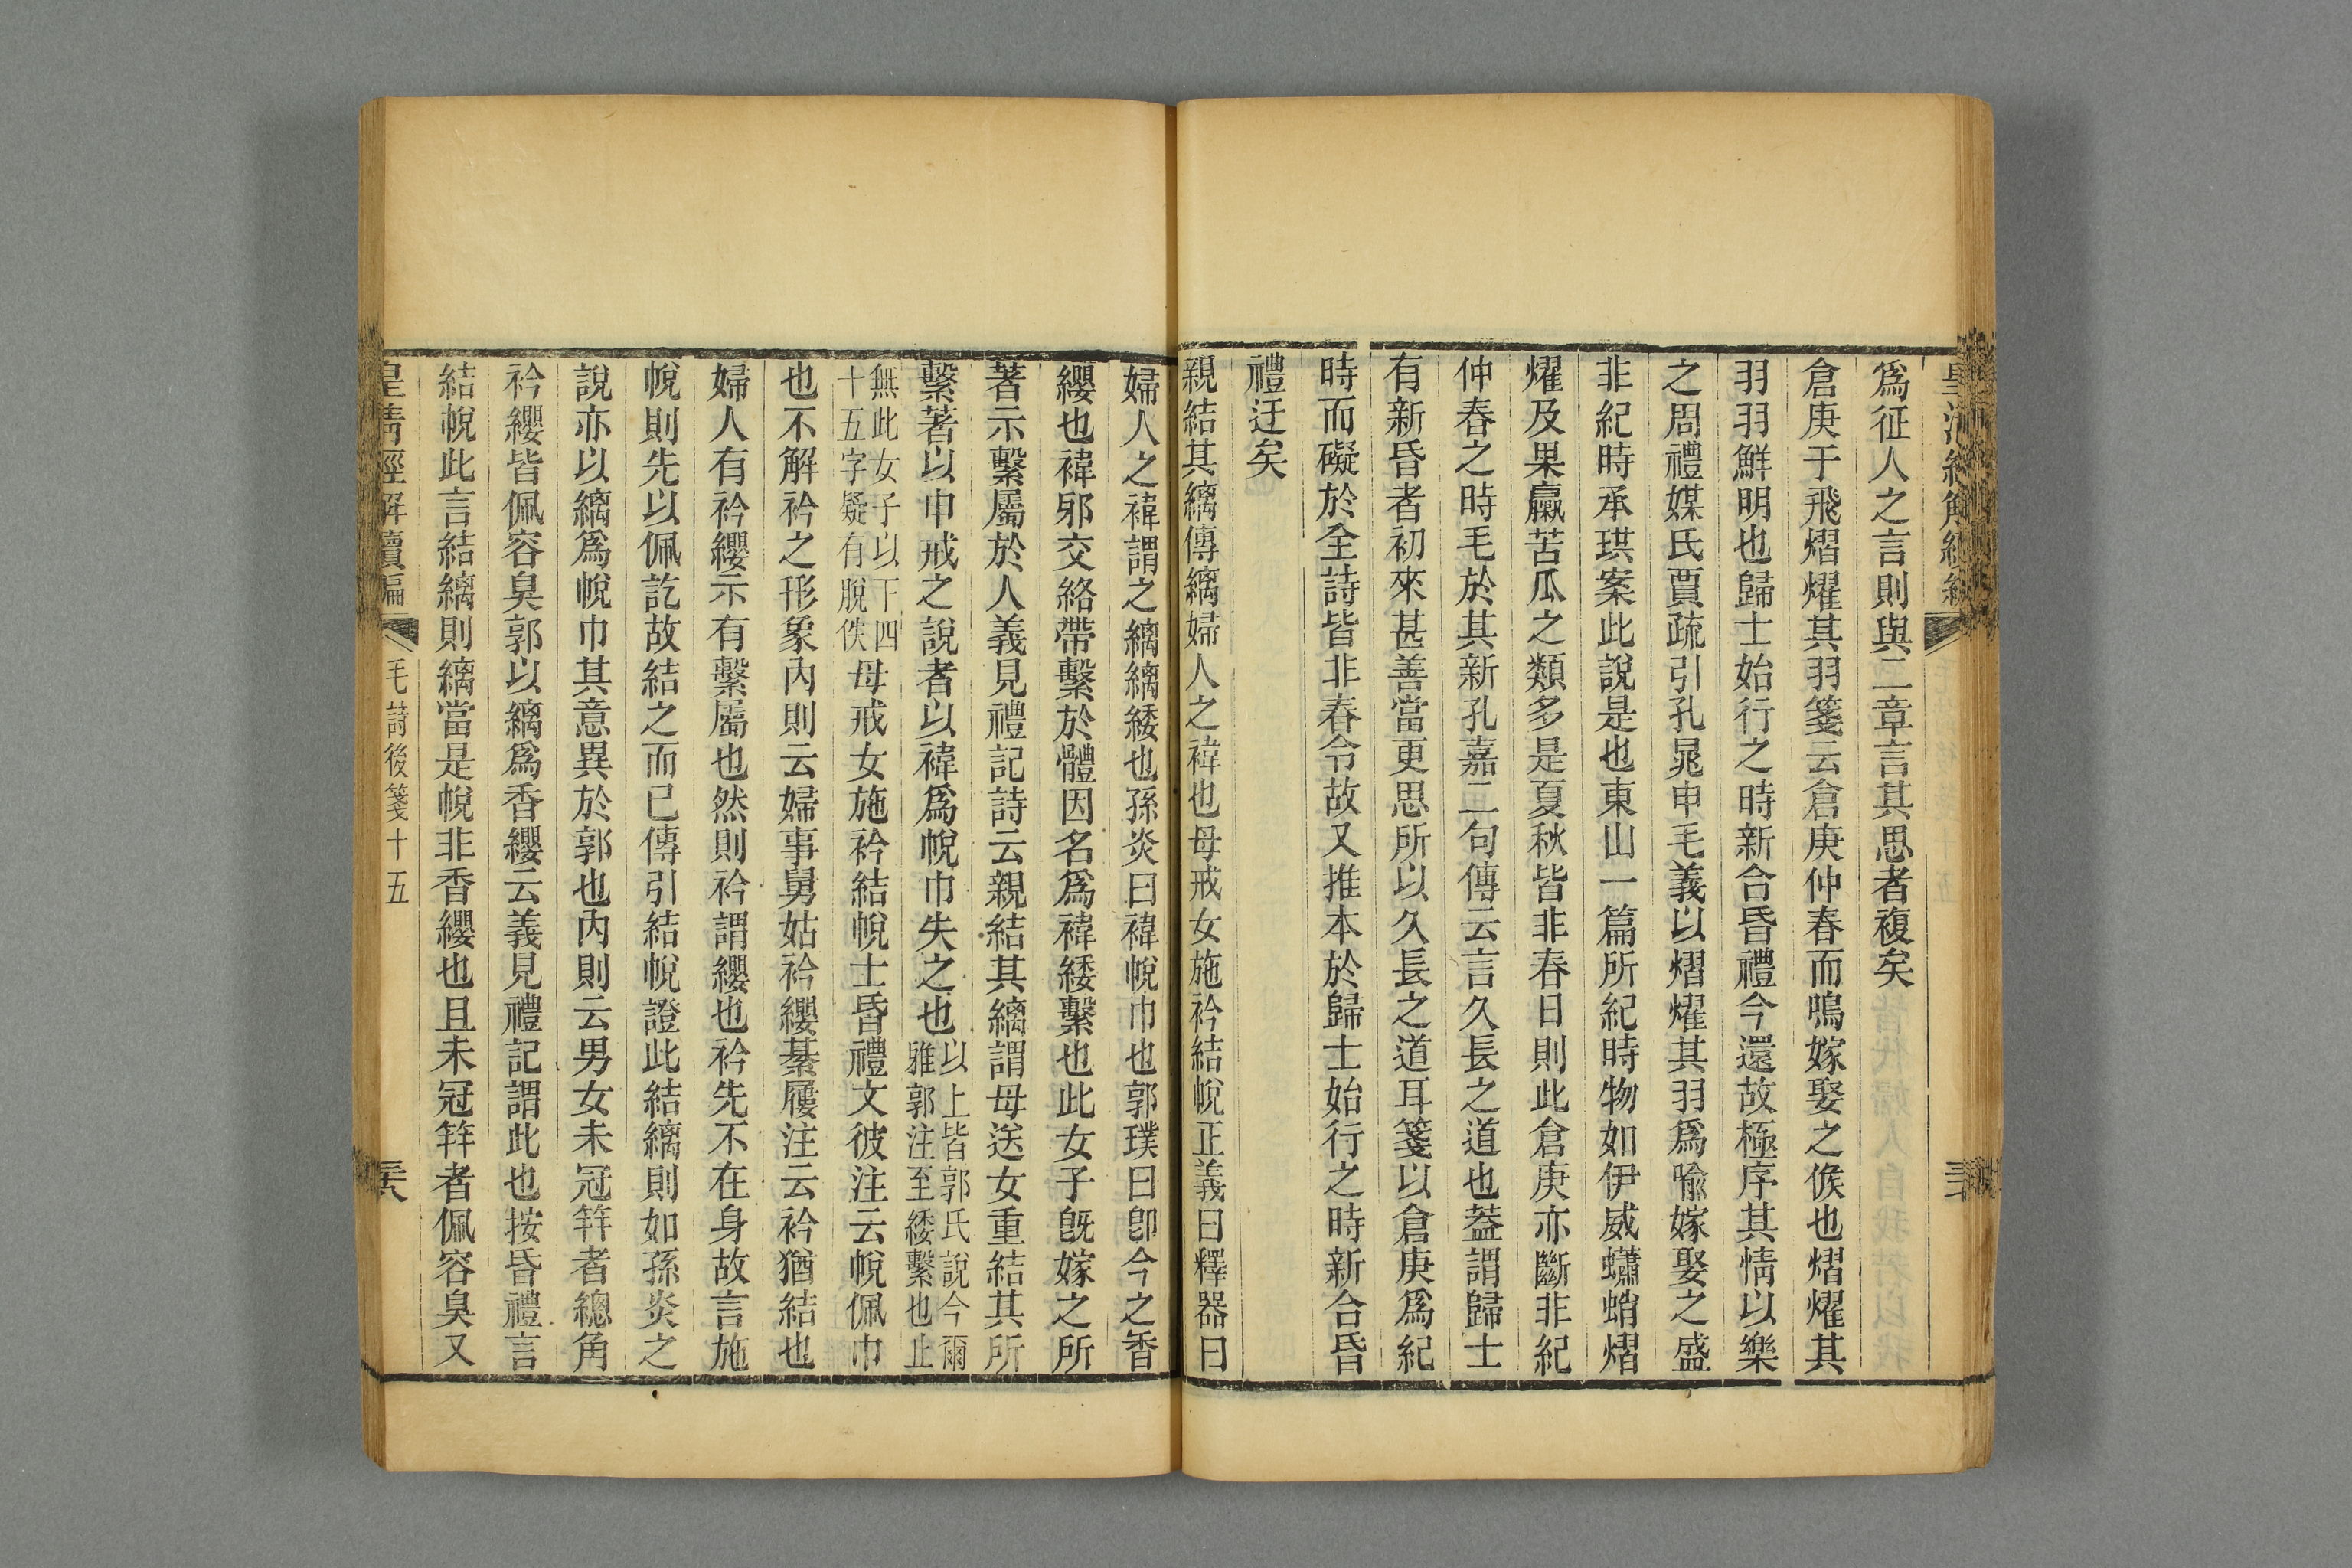 爲征人之言則與二章言其思者複矣
倉庚于飛熠燿其羽箋云倉庚仲春而鳴嫁娶之候也熠燿其
羽羽鮮明也歸士始行之時新合昏禮今還故極序其情以樂
之周禮媒氏賈疏引孔晁申毛義以熠燿其羽爲喻嫁娶之盛
非紀時承珙案此說是也東山一篇所紀時物如伊威蠨蛸熠
燿及果臝苦瓜之類多是夏秋皆非春日則此倉庚亦斷非紀
仲春之時毛於其新孔嘉二句傳云言久長之道也葢謂歸士
有新昏者初來甚善當更思所以久長之道耳箋以倉庚爲紀
時而礙於全詩皆非春令故又推本於歸士始行之時新合昏
禮迂矣
親結其縭傳縭婦人之褘也母戒女施衿結帨正義曰釋器曰
婦人之褘謂之縭縭緌也孫炎曰褘帨巾也郭璞曰卽今之香
纓也褘邪交絡帶繫於體因名爲褘緌繫也此女子旣嫁之所
著示繫屬於人義見禮記詩云親結其縭謂母送女重結其所
繫著以申戒之說者以褘爲帨巾失之也以上皆郭氏說今爾雅郭注至緌繫也止
無此女子以下四十五字疑有脫佚母戒女施衿結帨士昏禮文彼注云帨佩巾
也不解衿之形象內則云婦事舅姑衿纓綦屨注云衿猶結也
婦人有衿纓示有繫屬也然則衿謂纓也衿先不在身故言施
帨則先以佩訖故結之而已傳引結帨證此結縭則如孫炎之
說亦以縭爲帨巾其意異於郭也內則云男女未冠笄者總角
衿纓皆佩容臭郭以縭爲香纓云義見禮記謂此也按昏禮言
結帨此言結縭則縭當是帨非香纓也且未冠笄者佩容臭又
皇清經解續編 毛詩後箋十五 三六